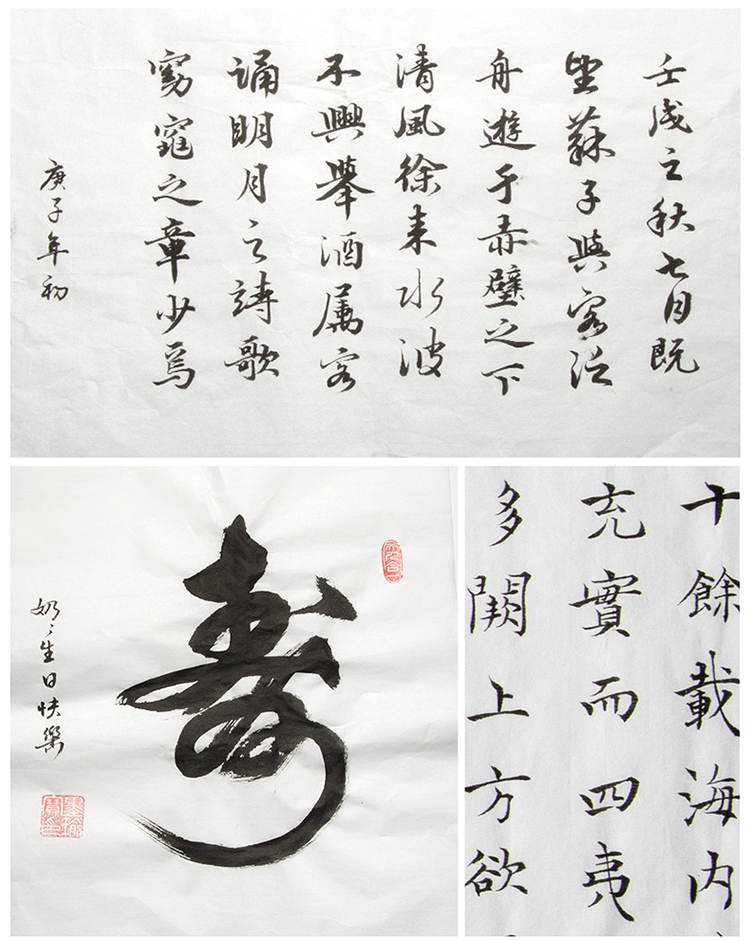 壬戌之秋七月既
望蘇子與客泛
舟遊于赤壁之下
清風徐来水波
不興舉酒属客
誦明月之詩歌
窈窕之章少焉
庚子年初
壽
奶〻生日快樂
十餘載海內
充實而四夷
多闕上方欲